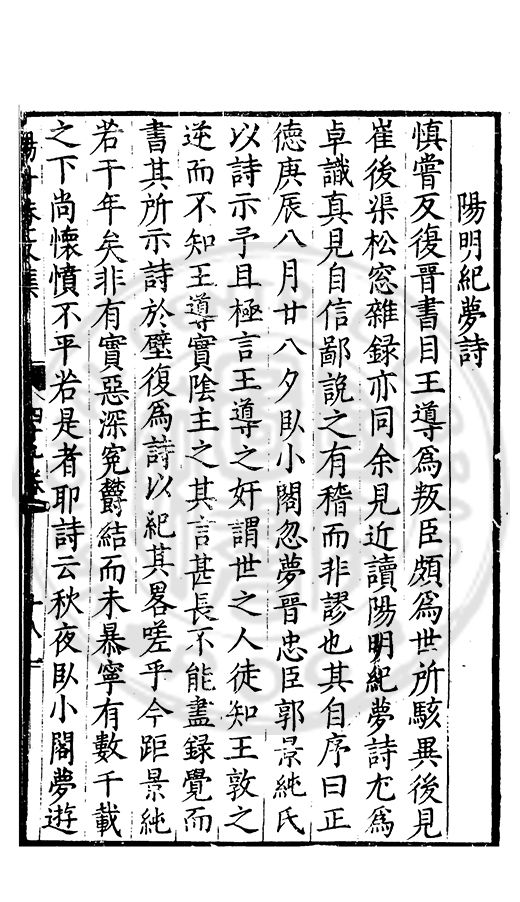 陽明紀夢詩
慎嘗反復晉書目王導為叛臣頗為世所駭異後見
崔後渠松窓雜録亦同余見近讀陽明紀夢詩尤為
卓識真見自信鄙説之有稽而非謬也其自序曰正
德庚辰八月廿八夕臥小閣忽夢晉忠臣郭景純氏
以詩示予且極言王導之奸謂世之人徒知王敦之
逆而不知王導實陰主之其言甚長不能盡録覺而
書其所示詩於壁復為詩以紀其畧嗟乎今距景純
若干年矣非有實惡深寃鬱結而未暴寧有數千載
之下尚懐憤不平若是者耶詩云秋夜臥小閣夢遊